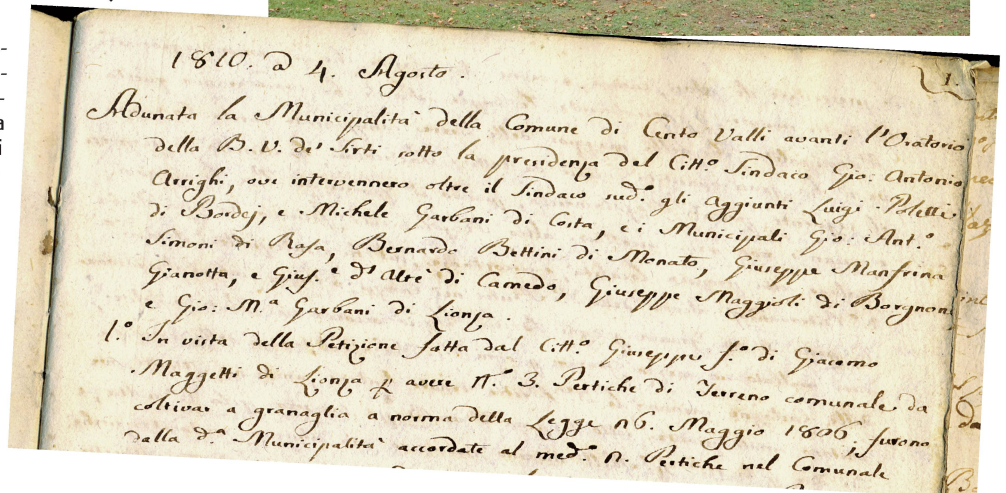 1810. a 4. Agosto.
1.
Adunata la Municipalità della Comune di Cento Valli avanti l'Oratorio
della B. V. de' Sirti sotto la presidenza del Citt.º Sindaco Gio: Antonio
Arrighi, ove intervennero oltre il Sindaco sud.º gli Aggiunti Luigi Poletti
di Bordej, e Michele Garbani di Costa, e i Municipali Gio: Ant.º
Simoni di Rasa, Bernardo Bettini di Monato, Giuseppe Manfrina
Gianotta, e Gius.e d'Alrè di Camedo, Giuseppe Maggioli di Borgnon
e Gio: M.a Garbani di Lionza.
1.º In vista della Petizione fatta dal Citt.º Giuseppe f.º di Giacomo
Maggetti di Lionza p avere N.º 3. Pertiche di Terreno comunale da
coltivar a granaglia a norma della Legge 26. Maggio 1806, furono
dalla d.a Municipalità accordate al med.º n. Pertiche nel Comunale